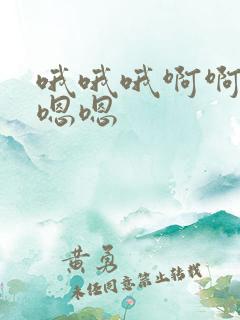 哦哦哦啊啊
嗯嗯
黄勇
未经同意禁止转载